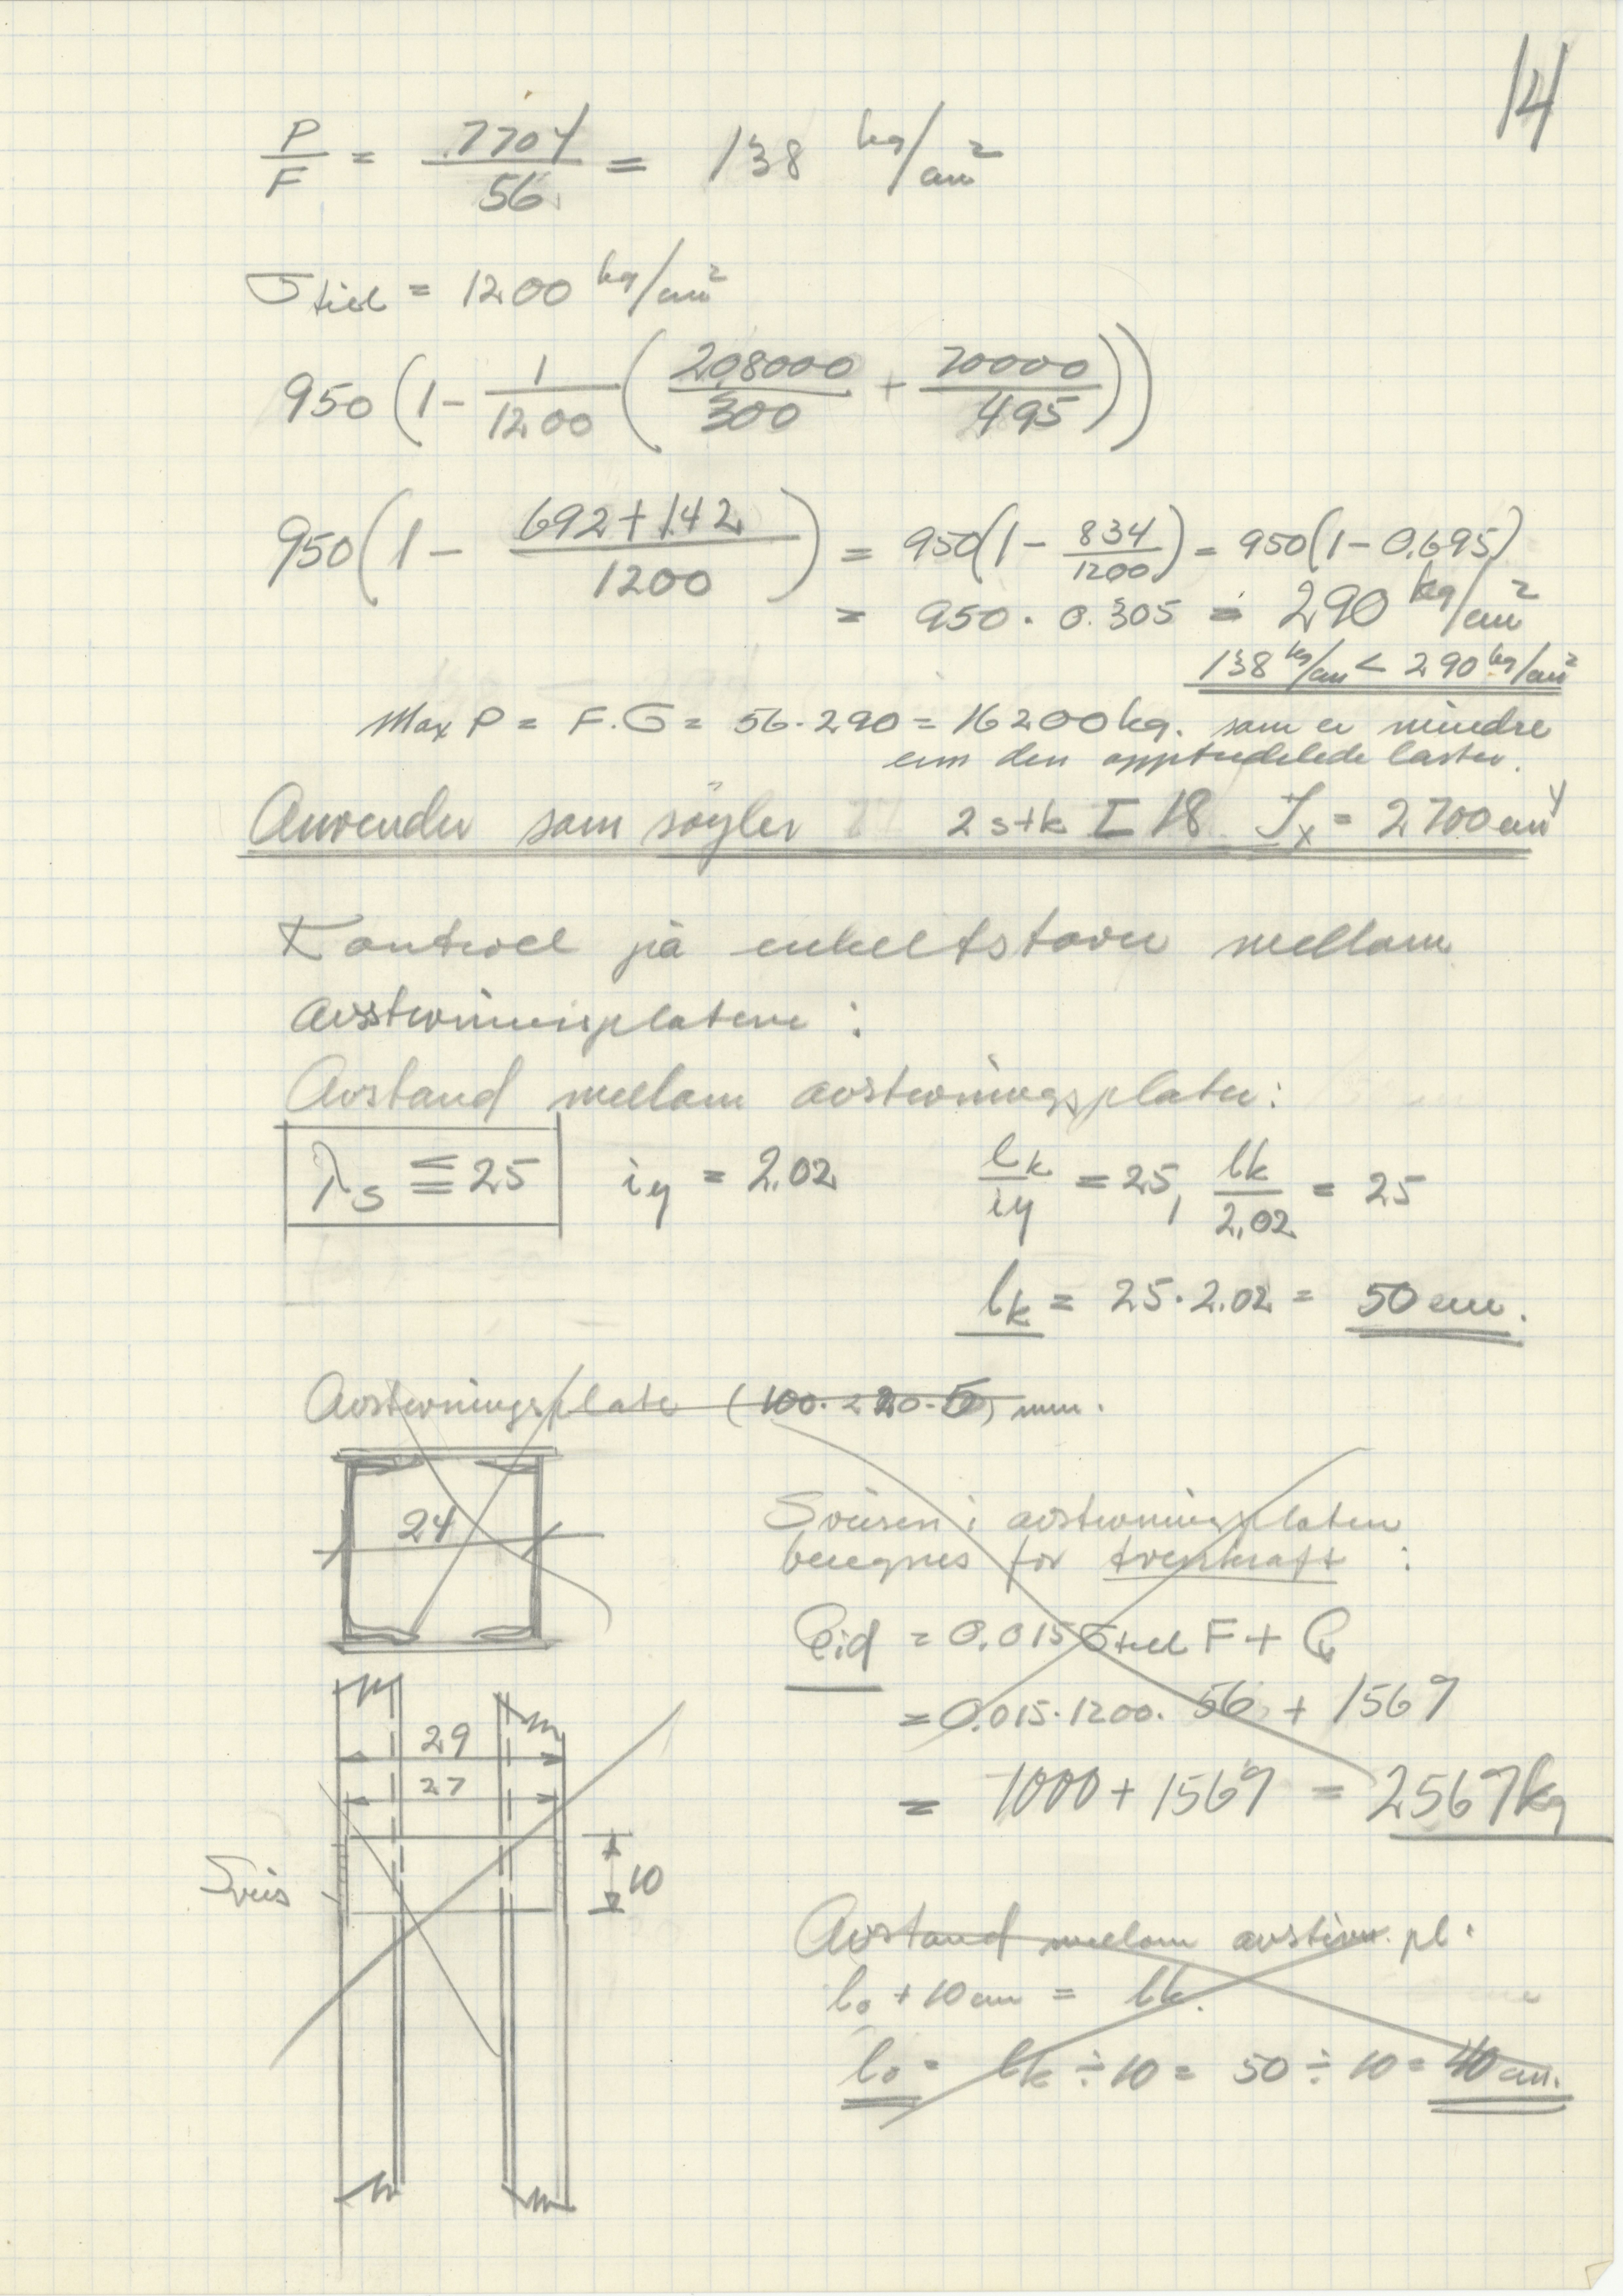 14
P/F = 7704/56 = 138 kg/cm²
σ till = 1200 kg/cm²
950 (1 - 1/1200 (208000/300 + 70000/495))
950 (1 - (692+142)/1200) = 950(1 - 834/1200) = 950(1 - 0.695)
= 950 · 0.305 = 290 kg/cm²
138 kg/cm < 290 kg/cm²
Max P = F.σ = 56·290 = 16200 kg. som er mindre
enn den opptredelede laster.
Anvender som søyler 2 stk I 18 Jx = 2700 cm⁴
Kontroll på enkeltstaver mellom
avstivningsplatene :
Avstand mellom avstivningsplater:
λs ≦ 25 iy = 2.02 lk/iy = 25, lk/2,02 = 25
lk = 25·2.02 = 50 cm.
Avstivningsplate (100·220·5) mm.
24
Sveisen i avstivningsplaten
beregnes for tverrkraft :
Qid = 0.015 σtill F + Q
= 0.015·1200· 56 + 1567
29
27
= 1000 + 1567 = 2567 kg
Sveis
10
Avstand mellom avstivn. pl:
lo + 10 cm = lk.
lo = lk ÷ 10 = 50 ÷ 10 = 40 cm.